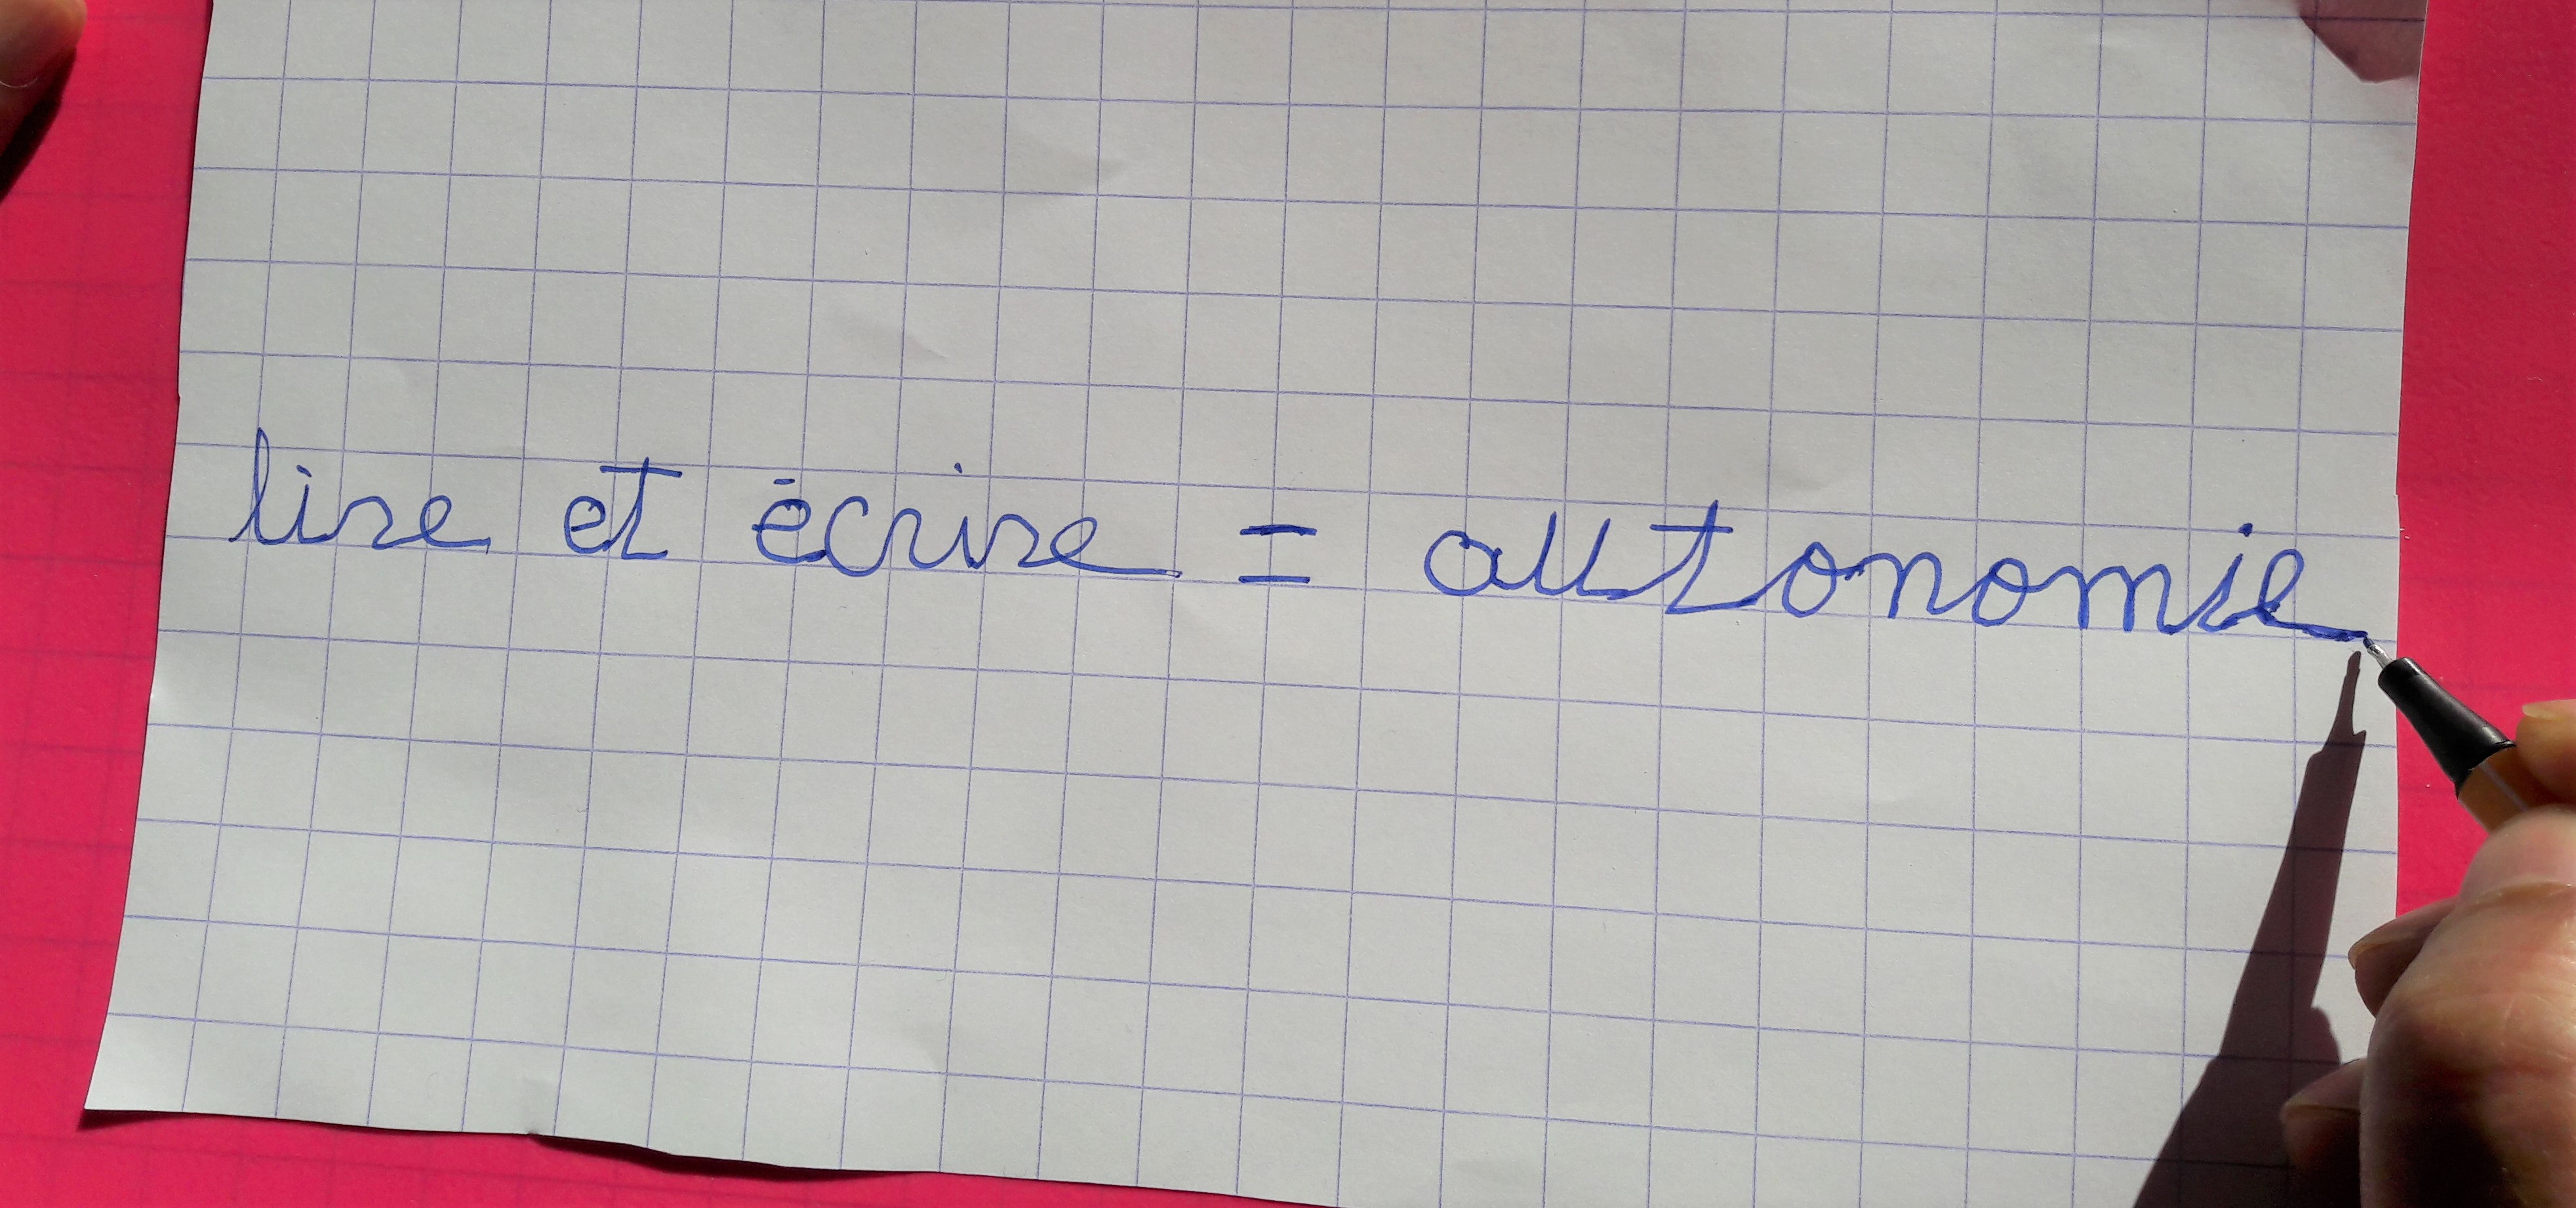 lire et écrire = autonomie